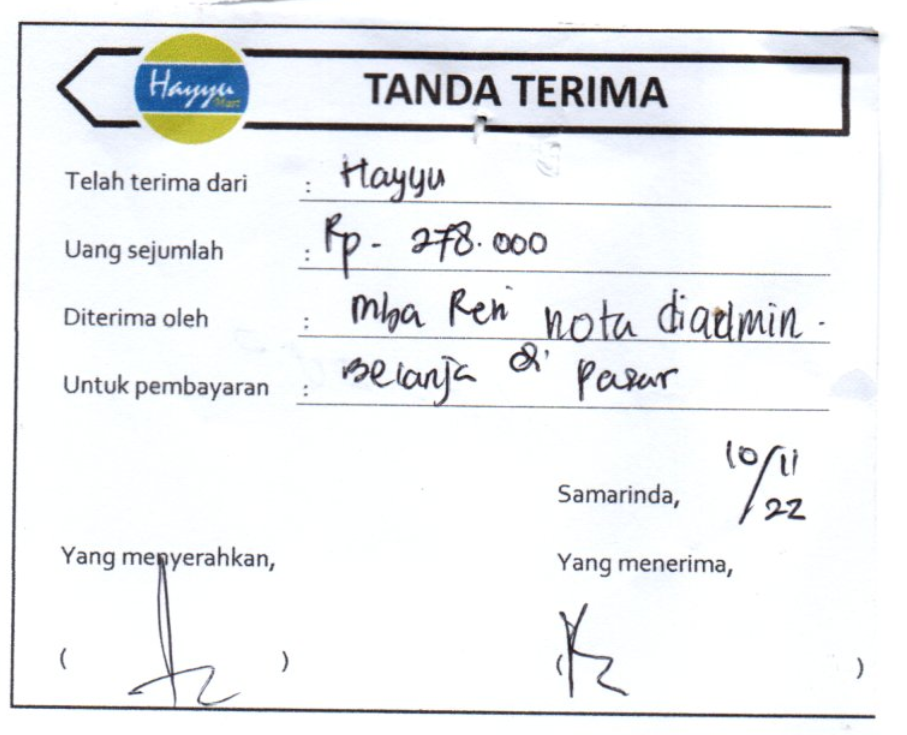 Hayyu
Mart
TANDA TERIMA
Telah terima dari : Hayyu
Uang sejumlah : Rp - 278.000
Diterima oleh : mba Ren nota diadmin.
Untuk pembayaran : Belanja di pasar
Samarinda, 10/11/22
Yang menyerahkan, Yang menerima,
( ) ( )